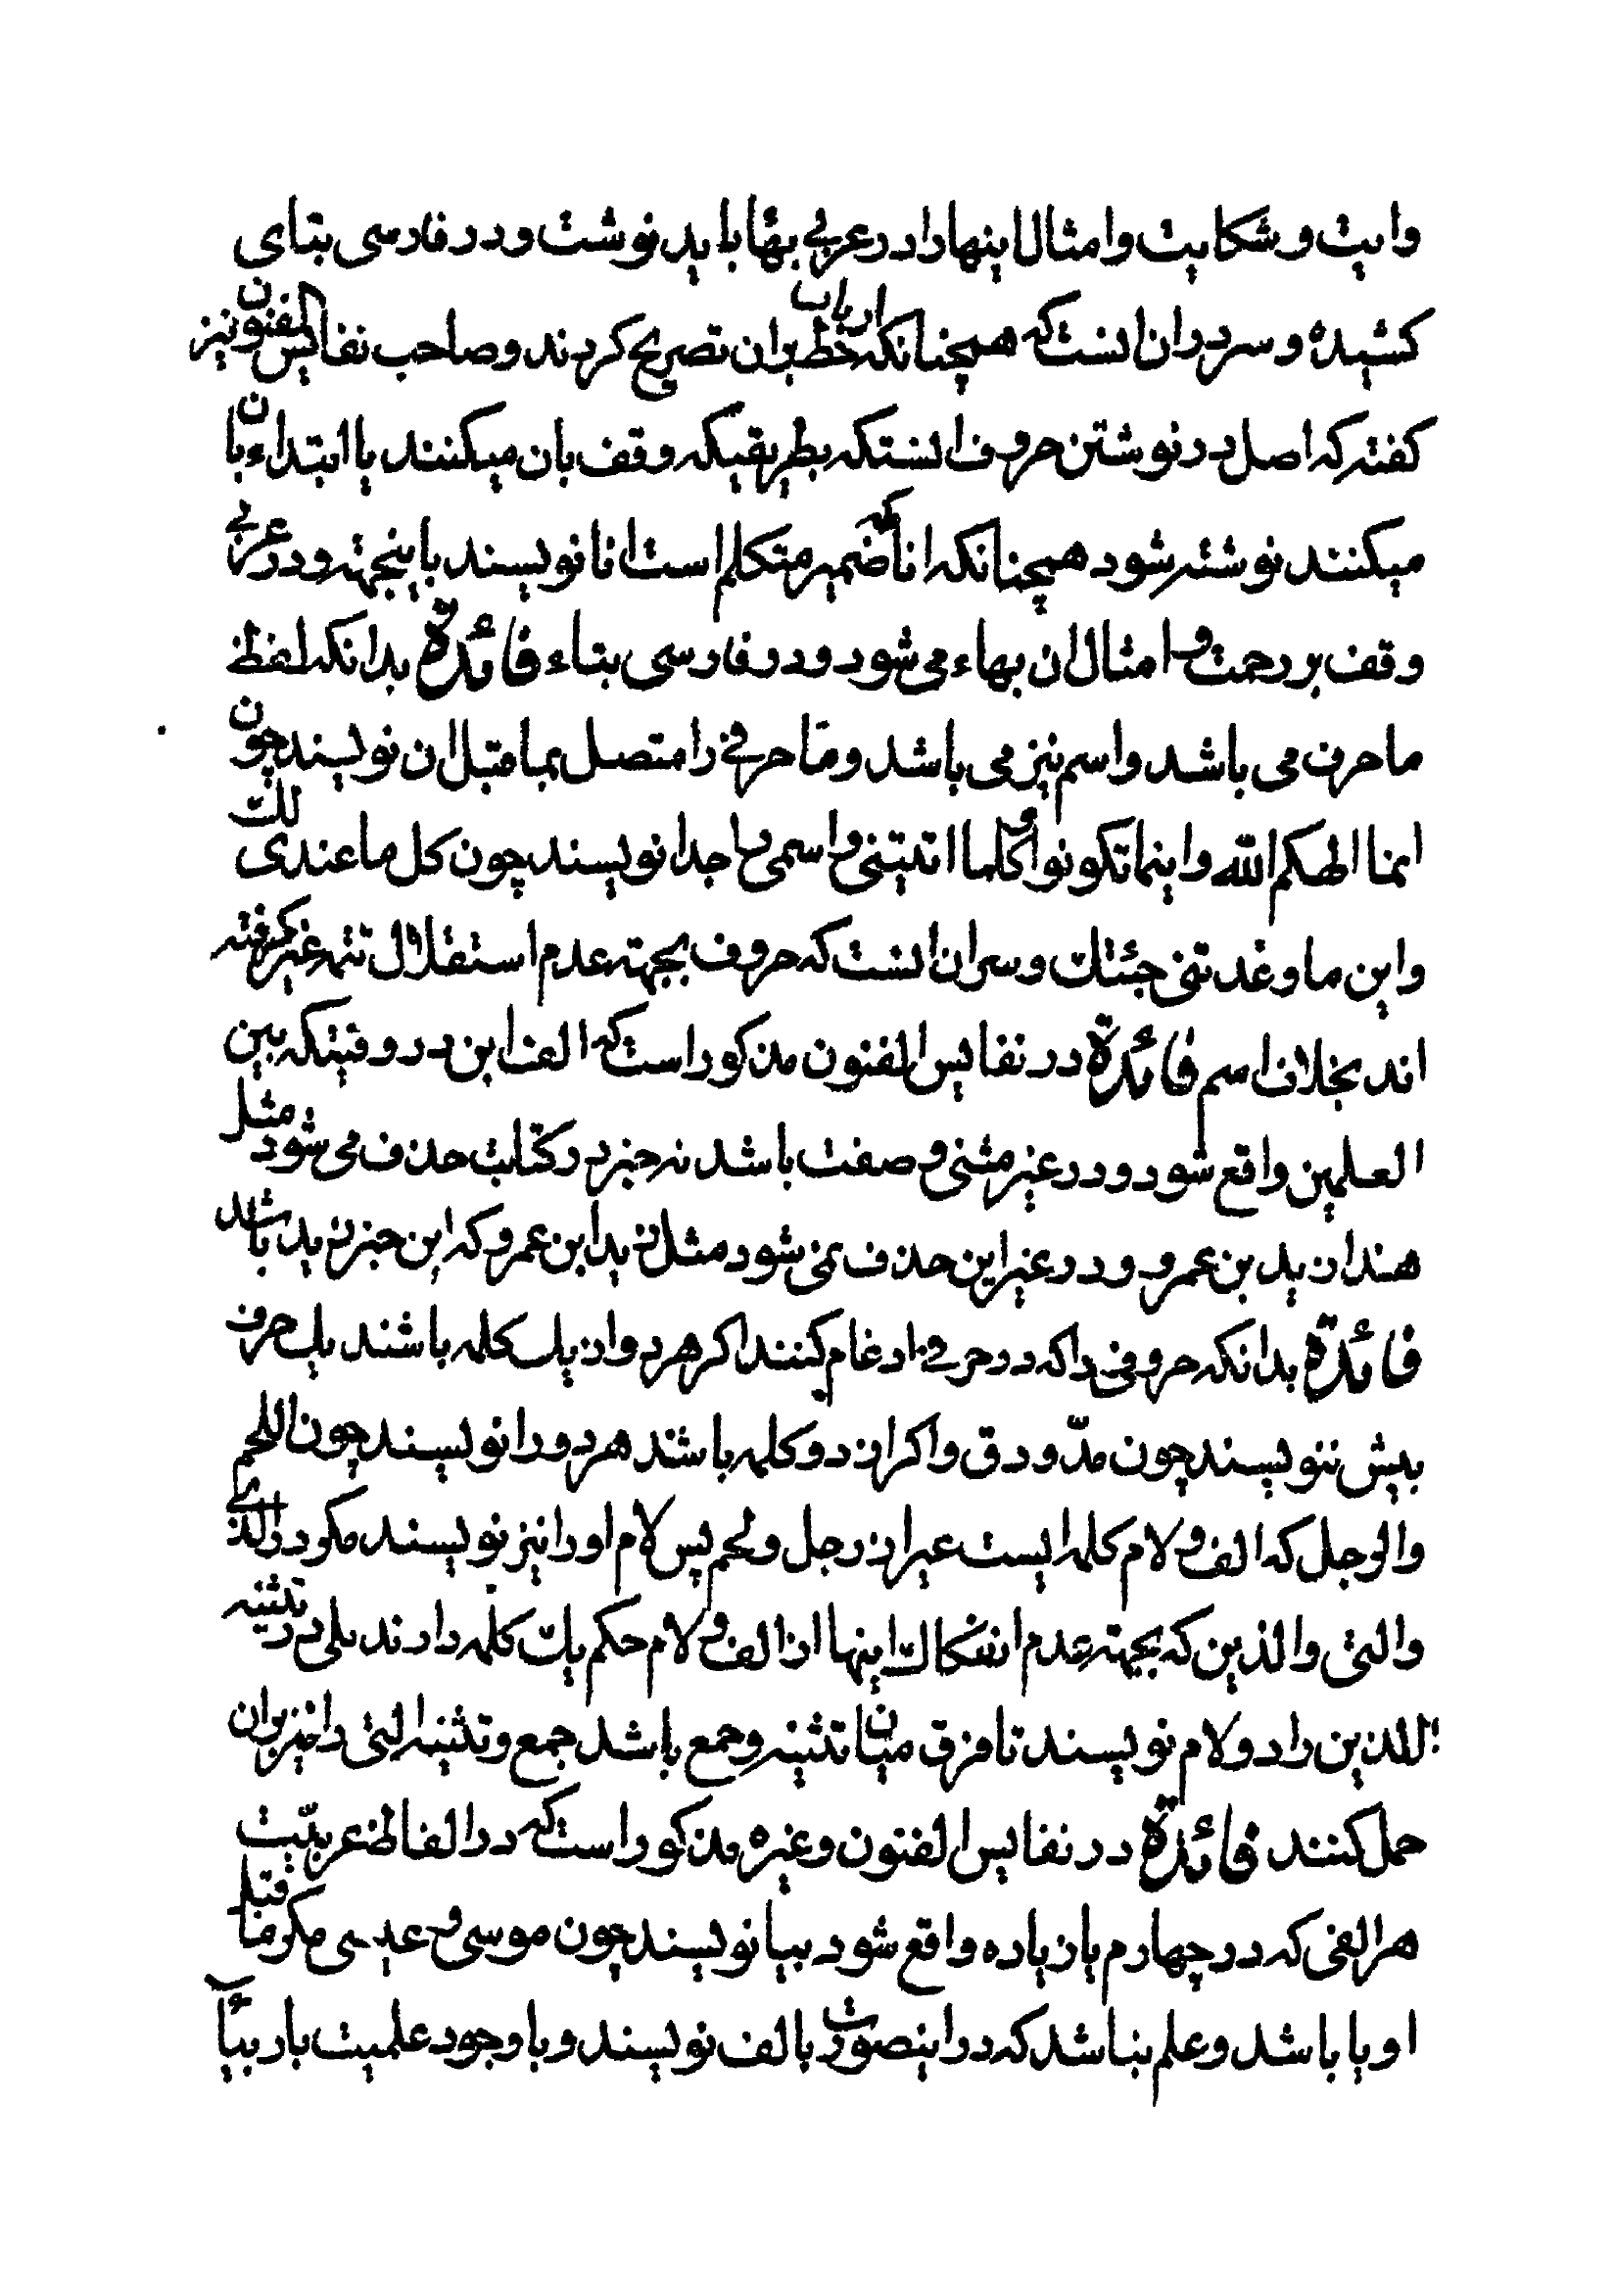 وایت و شکایت و امثال اینها را در عربی بهٰا باید نوشت و در فارسی بتای
کشیده و سر در ان انست که همچنانکه ارباب خط بران تصریح کردند و صاحب نفایس الفنون نیز
کفته که اصل در نوشتن حروف انستکه بطریقیکه وقف بان میکنند یا ابتداء بان
میکنند نوشته شود همچنانکه انا که ضمیر متکلم است انا نویسند باینجهته و در عربی
وقف بر رحمت و امثال ان بهاء می شود و در فارسی بتاء فائدة بدانکه لفظ
ما حرف می باشد و اسم نیز می باشد و ما حرفی را متصل بما قبل ان نویسند چون
انما الهکم الله و اینما تکونوا و کلما اتیتنی و اسمی را جدا نویسند چون کل ما عندی لک
و این ما وعدتنی جئتک و سر ان انست که حروف بجهته عدم استقلال تتمه غیر کرفته
اند بخلاف اسم فائدة در نفایس الفنون مذکور است که الف ابن در وقتیکه بین
العلمین واقع شود و در غیر مثنی و صفت باشد نه خبر در کتابت حذف می شود مثل
هذا زید بن عمرو و در غیر این حذف نمی شود مثل زید ابن عمرو که این خبر زید باشد
فائدة بدانکه حروفی را که در حرفی ادغام کنند اکر هر دو از یک کلمه باشند یک حرف
بیش ننویسند چون مدّ و دق و اکر از دو کلمه باشند هر دو را نویسند چون اللحم
و الرجل که الف و لام کلمه ایست غیر از رجل و لحم پس لام او را نیز نویسند مکر در الذی
و التی و الذین که بجهته عدم انفکاک اینها از الف و لام حکم یک کلمه دارند بلی در تثنیه
اللذین را دو لام نویسند تا فرق میان تثنیه و جمع باشد جمع و تثنیه التی را نیز بران
حمل کنند فائدة در نفایس الفنون و غیره مذکور است که در الفاظ عربیّت
هر الفی که در چهارم یا زیاده واقع شود بیا نویسند چون موسی و عیسی مکر ما قبل
او یا باشد و علم نباشد که در اینصورت بالف نویسند و با وجود علمیت باز بیا